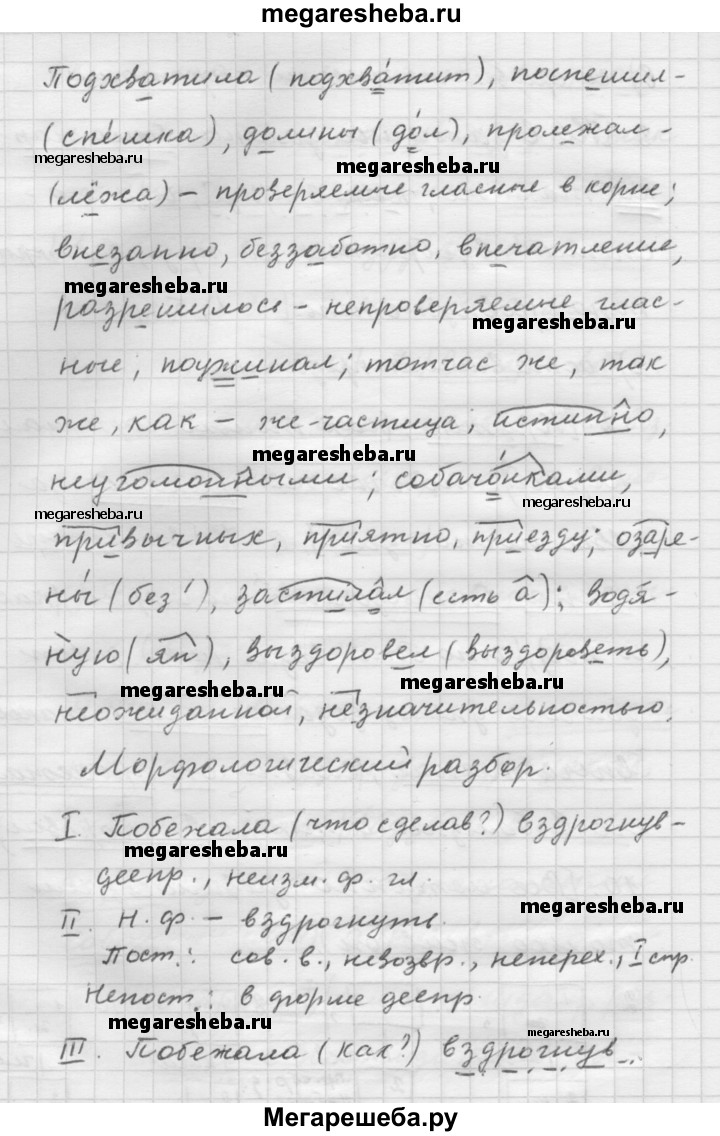 megaresheba.ru
Подхватила (подхва́тит), поспешил-
(спе́шка), долины (до́л), пролежал -
megaresheba.ru
megaresheba.ru
(лёжа) – проверяемые гласные в корне;
внезапно, беззаботно, впечатление,
megaresheba.ru
разрешилось – непроверяемые глас-
megaresheba.ru
ные, поужинал; тотчас же, так
же, как – же-частица; истинно,
megaresheba.ru
неугомонными; собачо́нками,
megaresheba.ru
megaresheba.ru
привычных, приятно, приезду; озаре-
ны́ (без ́), застилал (есть а); водя-
ную (ян), выздоровел (выздороветь),
megaresheba.ru
megaresheba.ru
неожиданной, незначительностью.
Морфологический разбор.
I. Побежала (что сделав?) вздрогнув –
megaresheba.ru
деепр., неизм. ф. гл.
megaresheba.ru
II. Н. ф. – вздрогнуть.
Пост.: сов. в., невозвр., неперех., I спр.
Непост.: в форме деепр.
megaresheba.ru
megaresheba.ru
III. Побежала (как?) вздрогнув.
Мегарешеба.ру